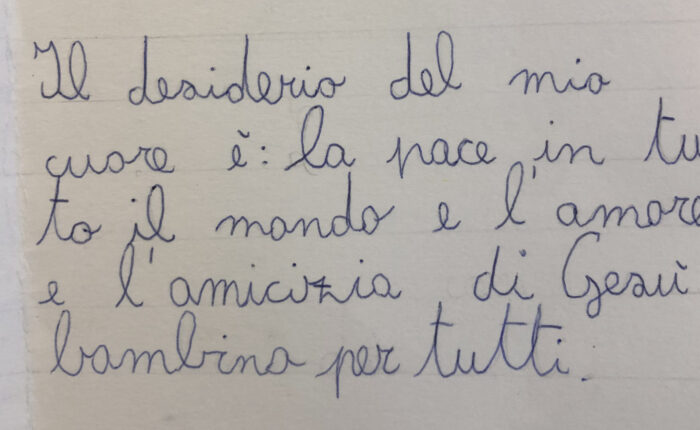 Il desiderio del mio
cuore è: la pace in tu
to il mondo e l'amore
e l'amicizia di Gesù
bambino per tutti.